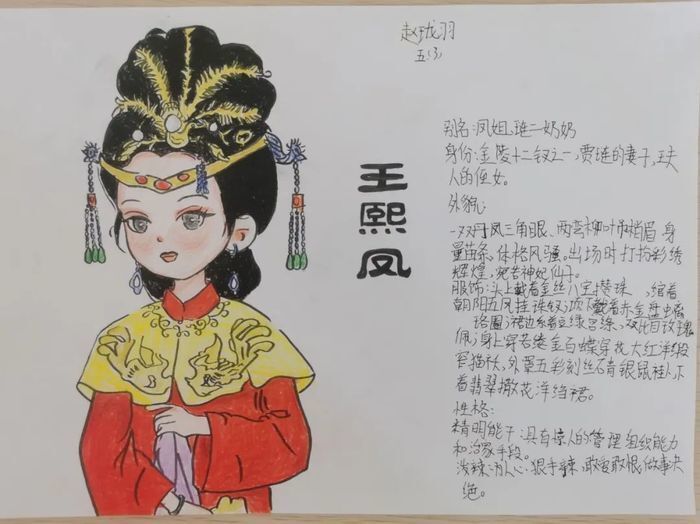 赵珑羽
五(3)
王熙凤
别名:凤姐、琏二奶奶
身份:金陵十二钗之一,贾琏的妻子,王夫
人的侄女。
外貌:
一双丹凤三角眼、两弯柳叶吊梢眉 身
量苗条、体格风骚。出场时打扮彩绣
辉煌,宛若神妃仙子。
服饰:头上戴着金丝八宝攒珠 ,绾着
朝阳五凤挂珠钗;项下戴着赤金盘螭
璎珞圈;裙边系着豆绿宫绦,双衡比目玫瑰
佩;身上穿着缕金百蝶穿花大红洋缎
窄 袄,外罩五彩刻丝石青银鼠褂;下
着翡翠撒花洋绉裙。
性格:
精明能干:具有惊人的管理组织能力
和治家手段。
泼辣:为人心 狠手辣,敢爱敢恨,做事决
绝。